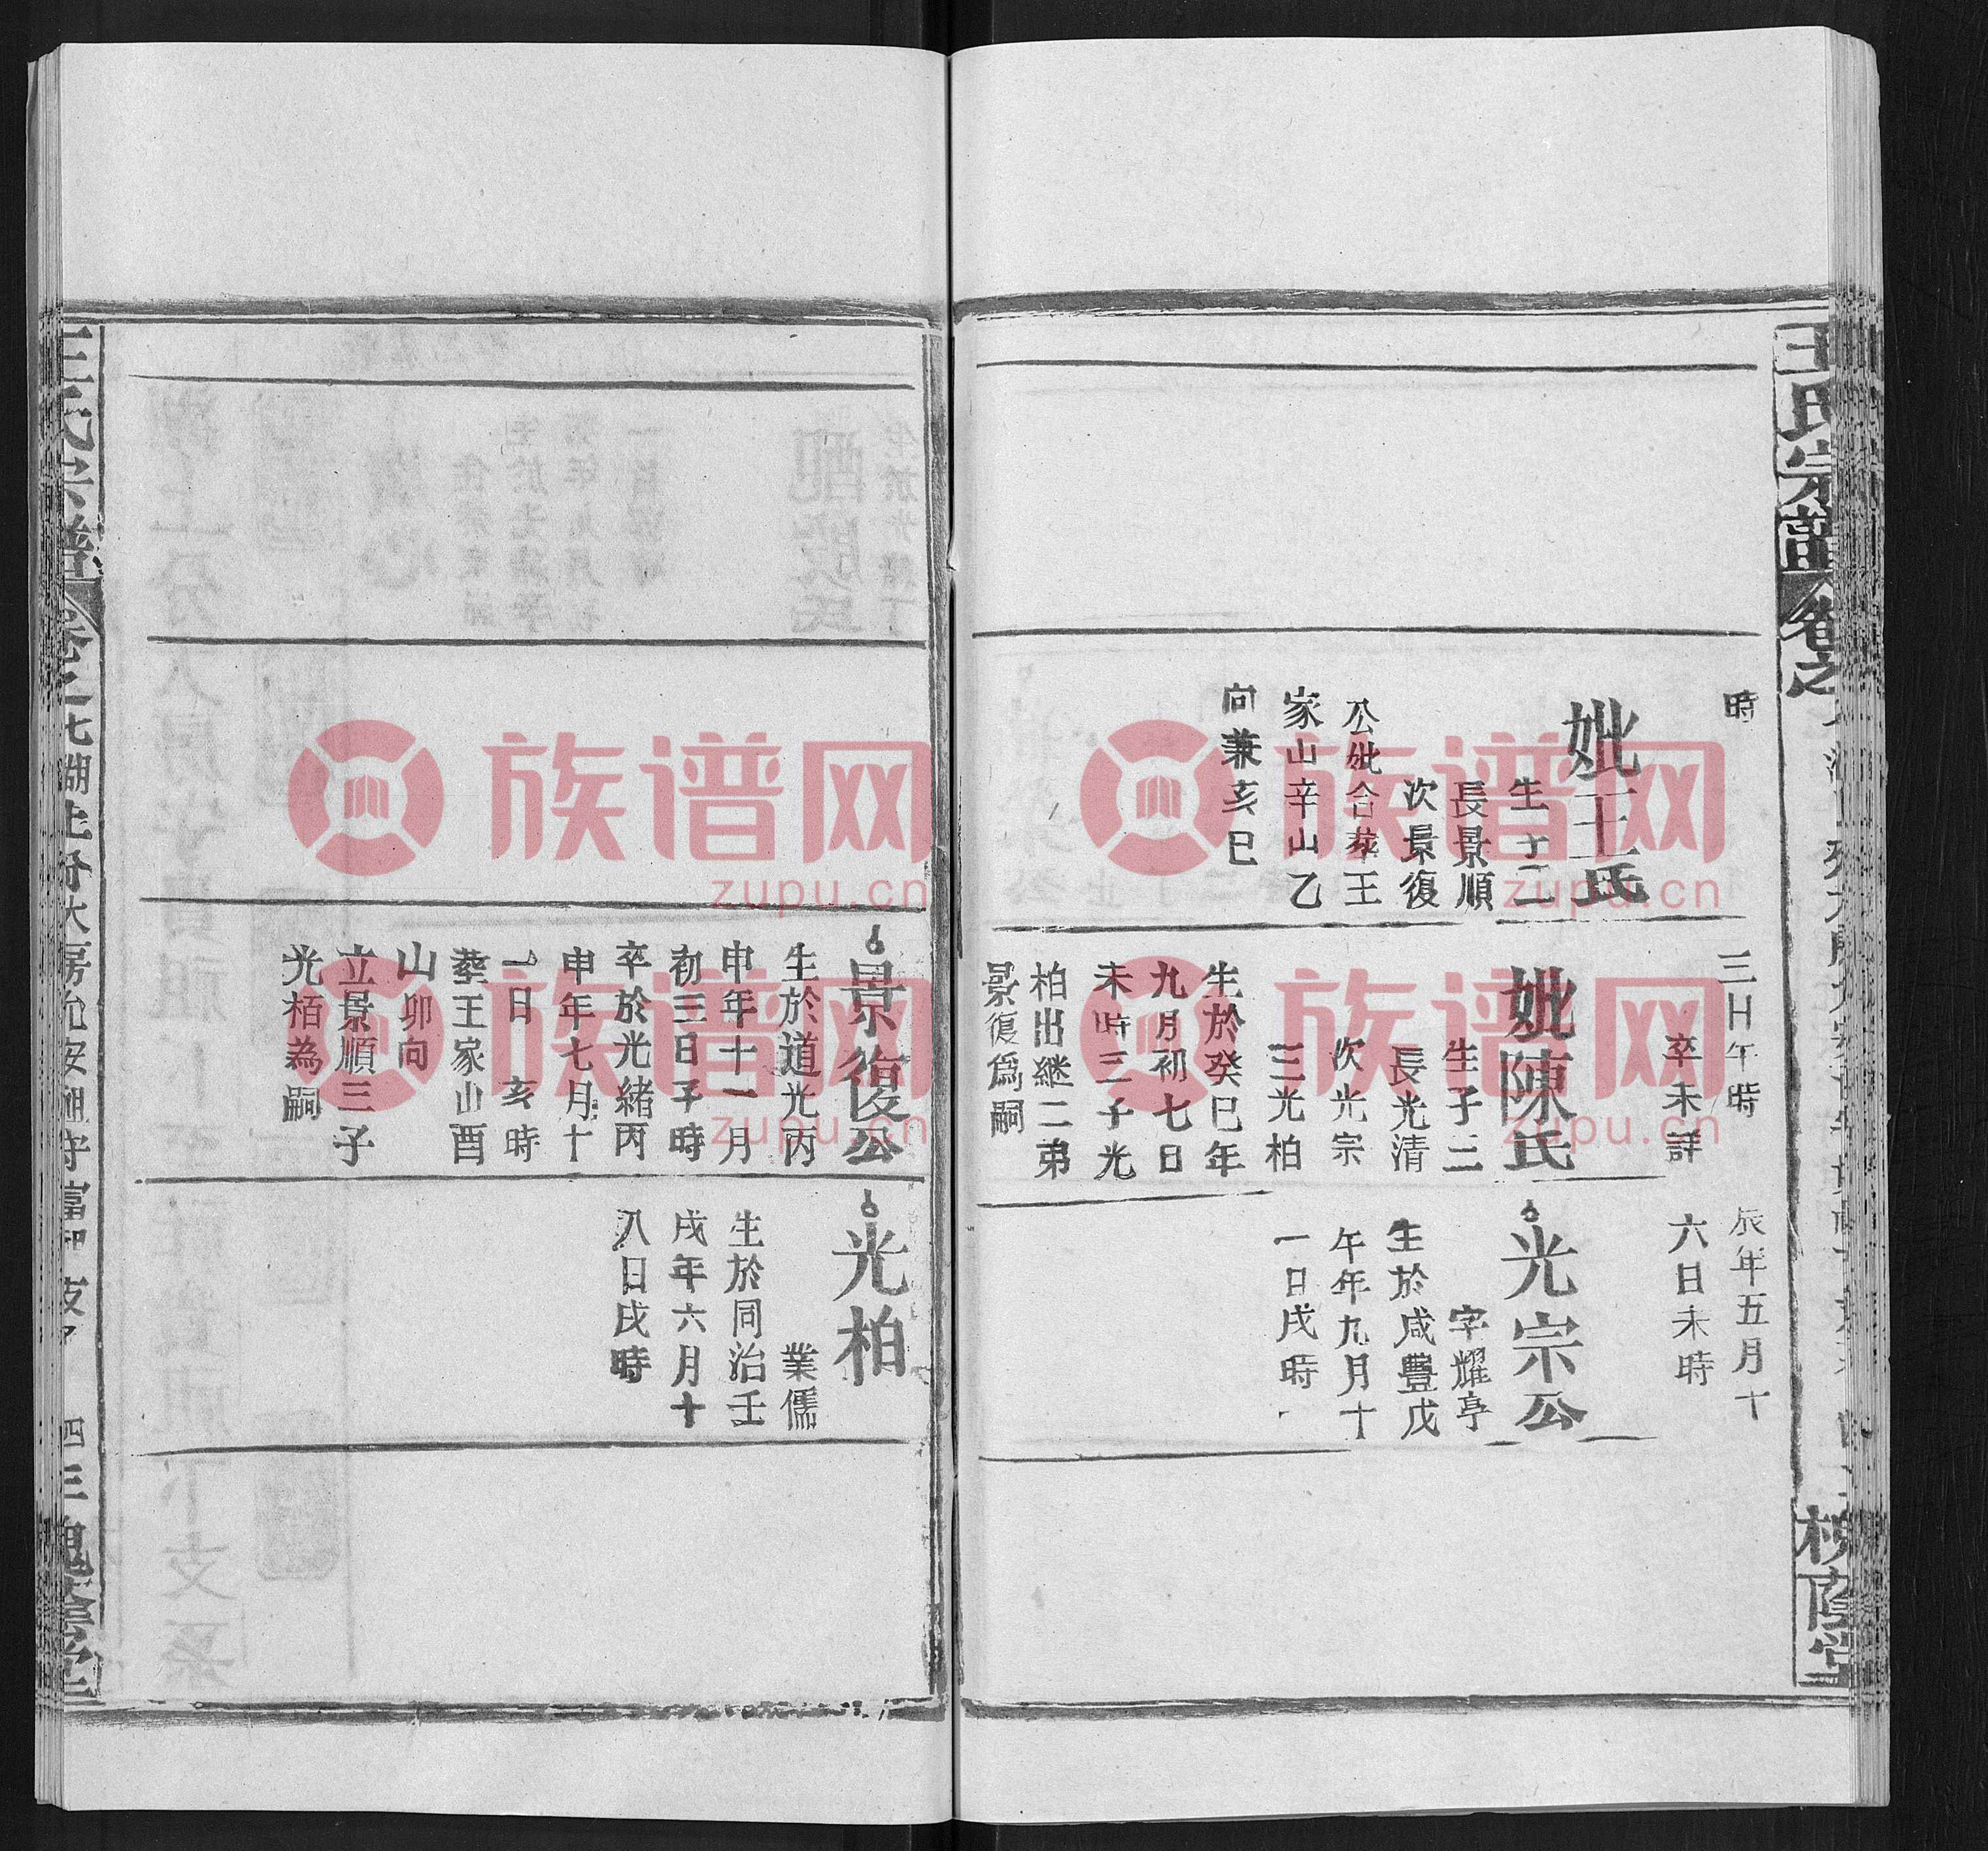 王氏宗譜
卷之
槐蔭堂
時
妣王氏
生子二
長景順
次景復
公妣合葬王
家山辛山乙
向兼亥巳
三日午時
卒未詳
妣陳氏
生子三
長光清
次光宗
三光柏
生於癸巳年
九月初七日
未時三子光
柏出継二弟
景復爲嗣
辰年五月十
六日未時
光宗公
字耀亭
生於咸豐戊
午年九月十
一日戌時
景復公
生於道光丙
申年十一月
初三日子時
卒於光緒丙
申年七月十
一日亥時
葬王家山酉
山卯向
立景順三子
光栢為嗣
光柏
業儒
生於同治壬
戌年六月十
八日戌時
王氏宗譜
卷之七湖上分大房允安祖守富
四三槐蔭堂
族谱网
zupu.cn
族谱网
zupu.cn
族谱网
zupu.cn
族谱网
zupu.cn